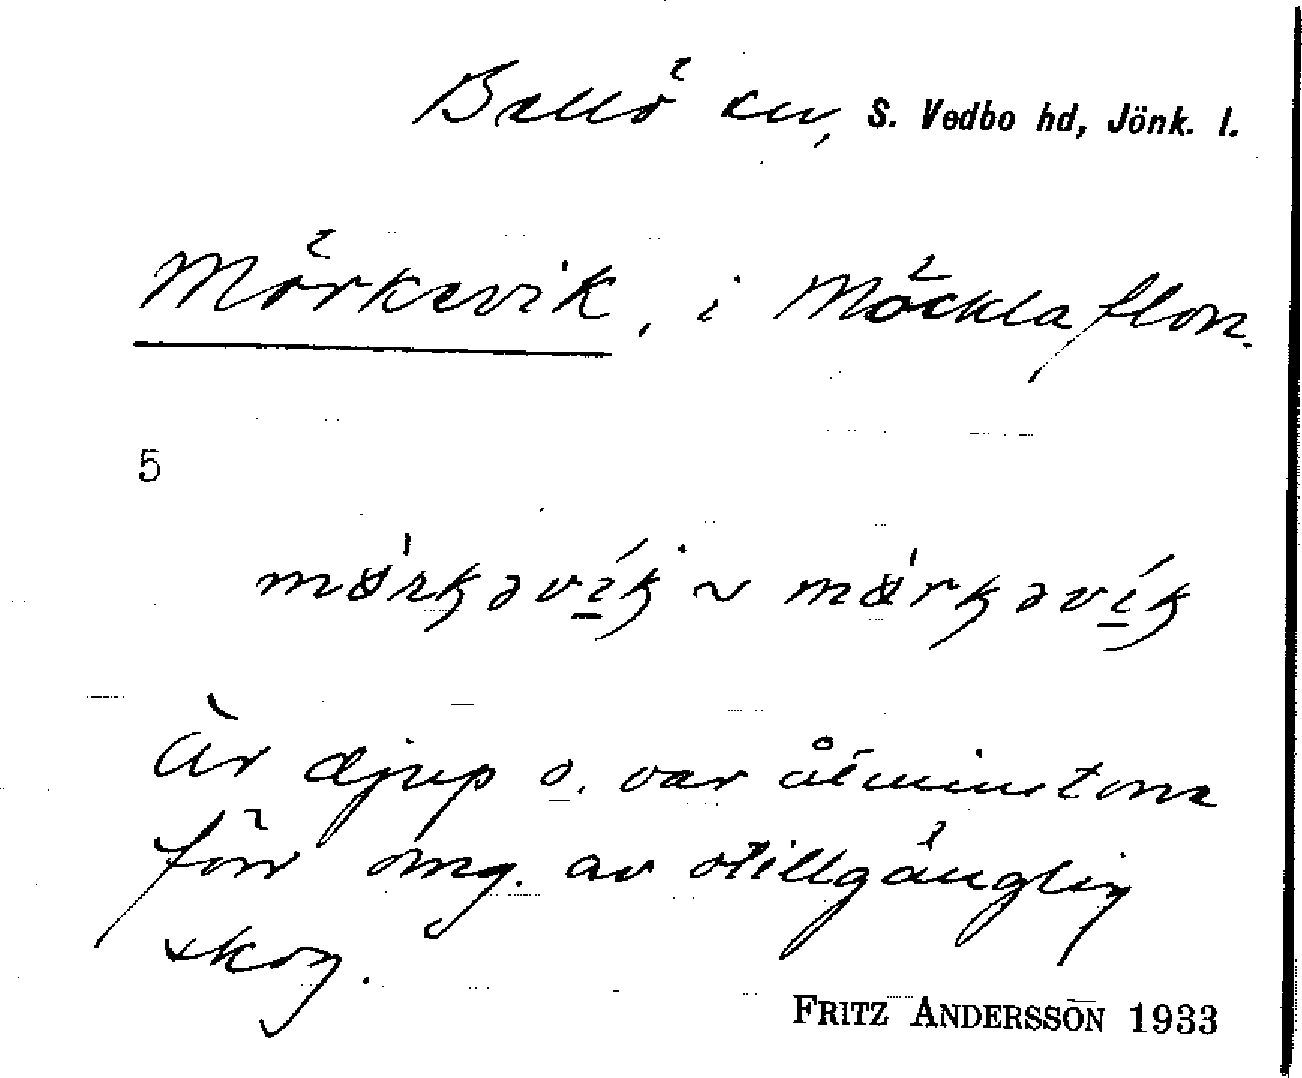 Bellö sn, S. Vedbo hd, Jönk. l.
Mörkevik, i Möcklaflon.
5
Är djup o. var åtminstone
förr omg. av otillgänglig
skog.
FRITZ ANDERSSON 1933